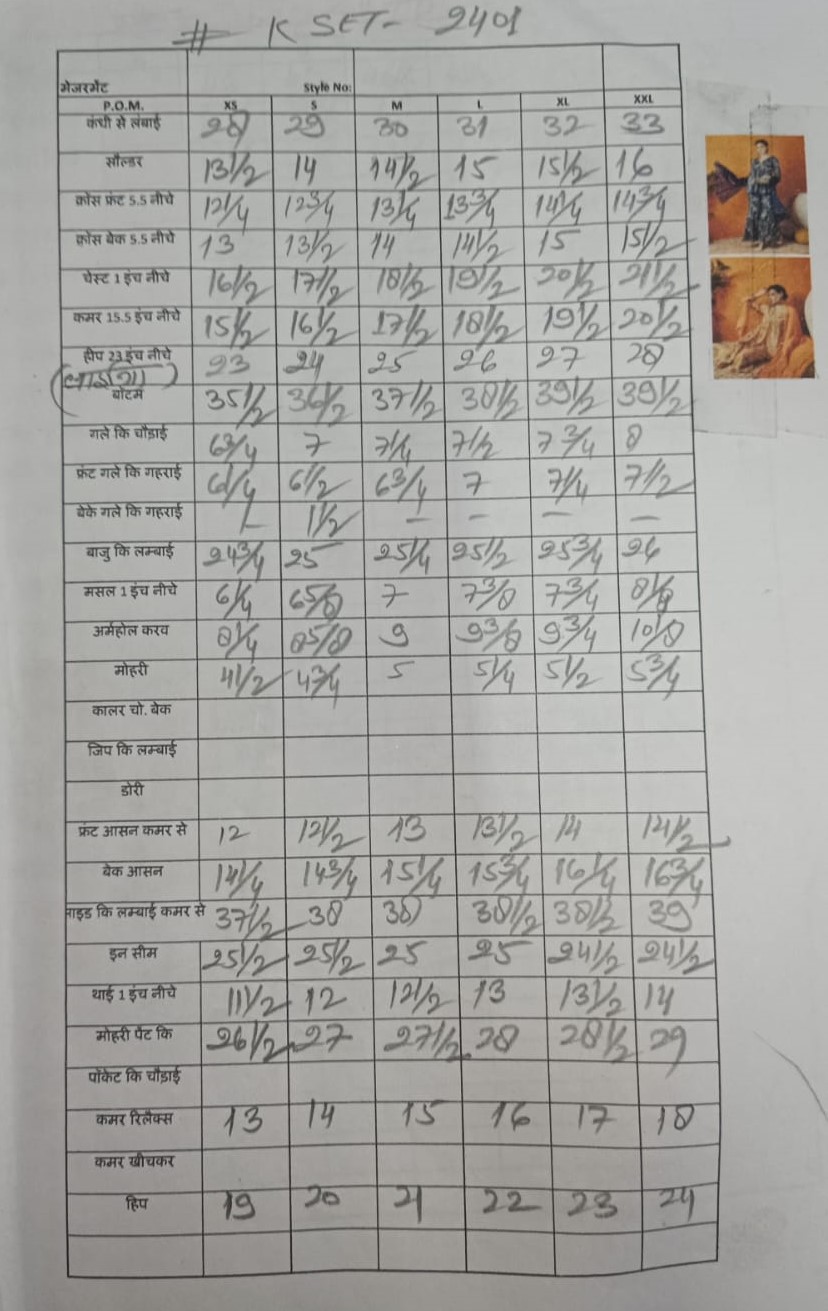 # K SET- 2401
मेजरमेंट Style No:
P.O.M. XS S M L XL XXL
कंधी से लंबाई 28 29 30 31 32 33
सौल्डर 13 1/2 14 14 1/2 15 15 1/2 16
क्रोंस फ्रंट 5.5 नीचे 12 1/4 12 3/4 13 1/4 13 3/4 14 1/4 14 3/4
क्रोंस बेक 5.5 नीचे 13 13 1/2 14 14 1/2 15 15 1/2
चेस्ट 1 इंच नीचे 16 1/2 17 1/2 18 1/2 19 1/2 20 1/2 21 1/2
कमर 15.5 इंच नीचे 15 1/2 16 1/2 17 1/2 18 1/2 19 1/2 20 1/2
हीप 23 इंच नीचे 23 24 25 26 27 28
बोटम 35 1/2 36 1/2 37 1/2 38 1/2 39 1/2 39 1/2
गले कि चौड़ाई 6 3/4 7 7 1/4 7 1/2 7 3/4 8
फ्रंट गले कि गहराई 6 1/4 6 1/2 6 3/4 7 7 1/4 7 1/2
बेके गले कि गहराई – 1 1/2 – – – –
बाजु कि लम्बाई 24 3/4 25 25 1/4 25 1/2 25 3/4 26
मसल 1 इंच नीचे 6 1/4 6 5/8 7 7 3/8 7 3/4 8 1/8
अर्महोल करव 8 1/4 8 5/8 9 9 3/8 9 3/4 10 1/8
मोहरी 4 1/2 4 3/4 5 5 1/4 5 1/2 5 3/4
कालर चो. बेक
जिप कि लम्बाई
डोरी
फ्रंट आसन कमर से 12 12 1/2 13 13 1/2 14 14 1/2
बेक आसन 14 1/4 14 3/4 15 1/4 15 3/4 16 1/4 16 3/4
साइड कि लम्बाई कमर से 37 1/2 38 38 38 1/2 38 1/2 39
इन सीम 25 1/2 25 1/2 25 25 24 1/2 24 1/2
थाई 1 इंच नीचे 11 1/2 12 12 1/2 13 13 1/2 14
मोहरी पेंट कि 26 1/2 27 27 1/2 28 28 1/2 29
पॉकेट कि चौड़ाई
कमर रिलैक्स 13 14 15 16 17 18
कमर खीचकर
हिप 19 20 21 22 23 24